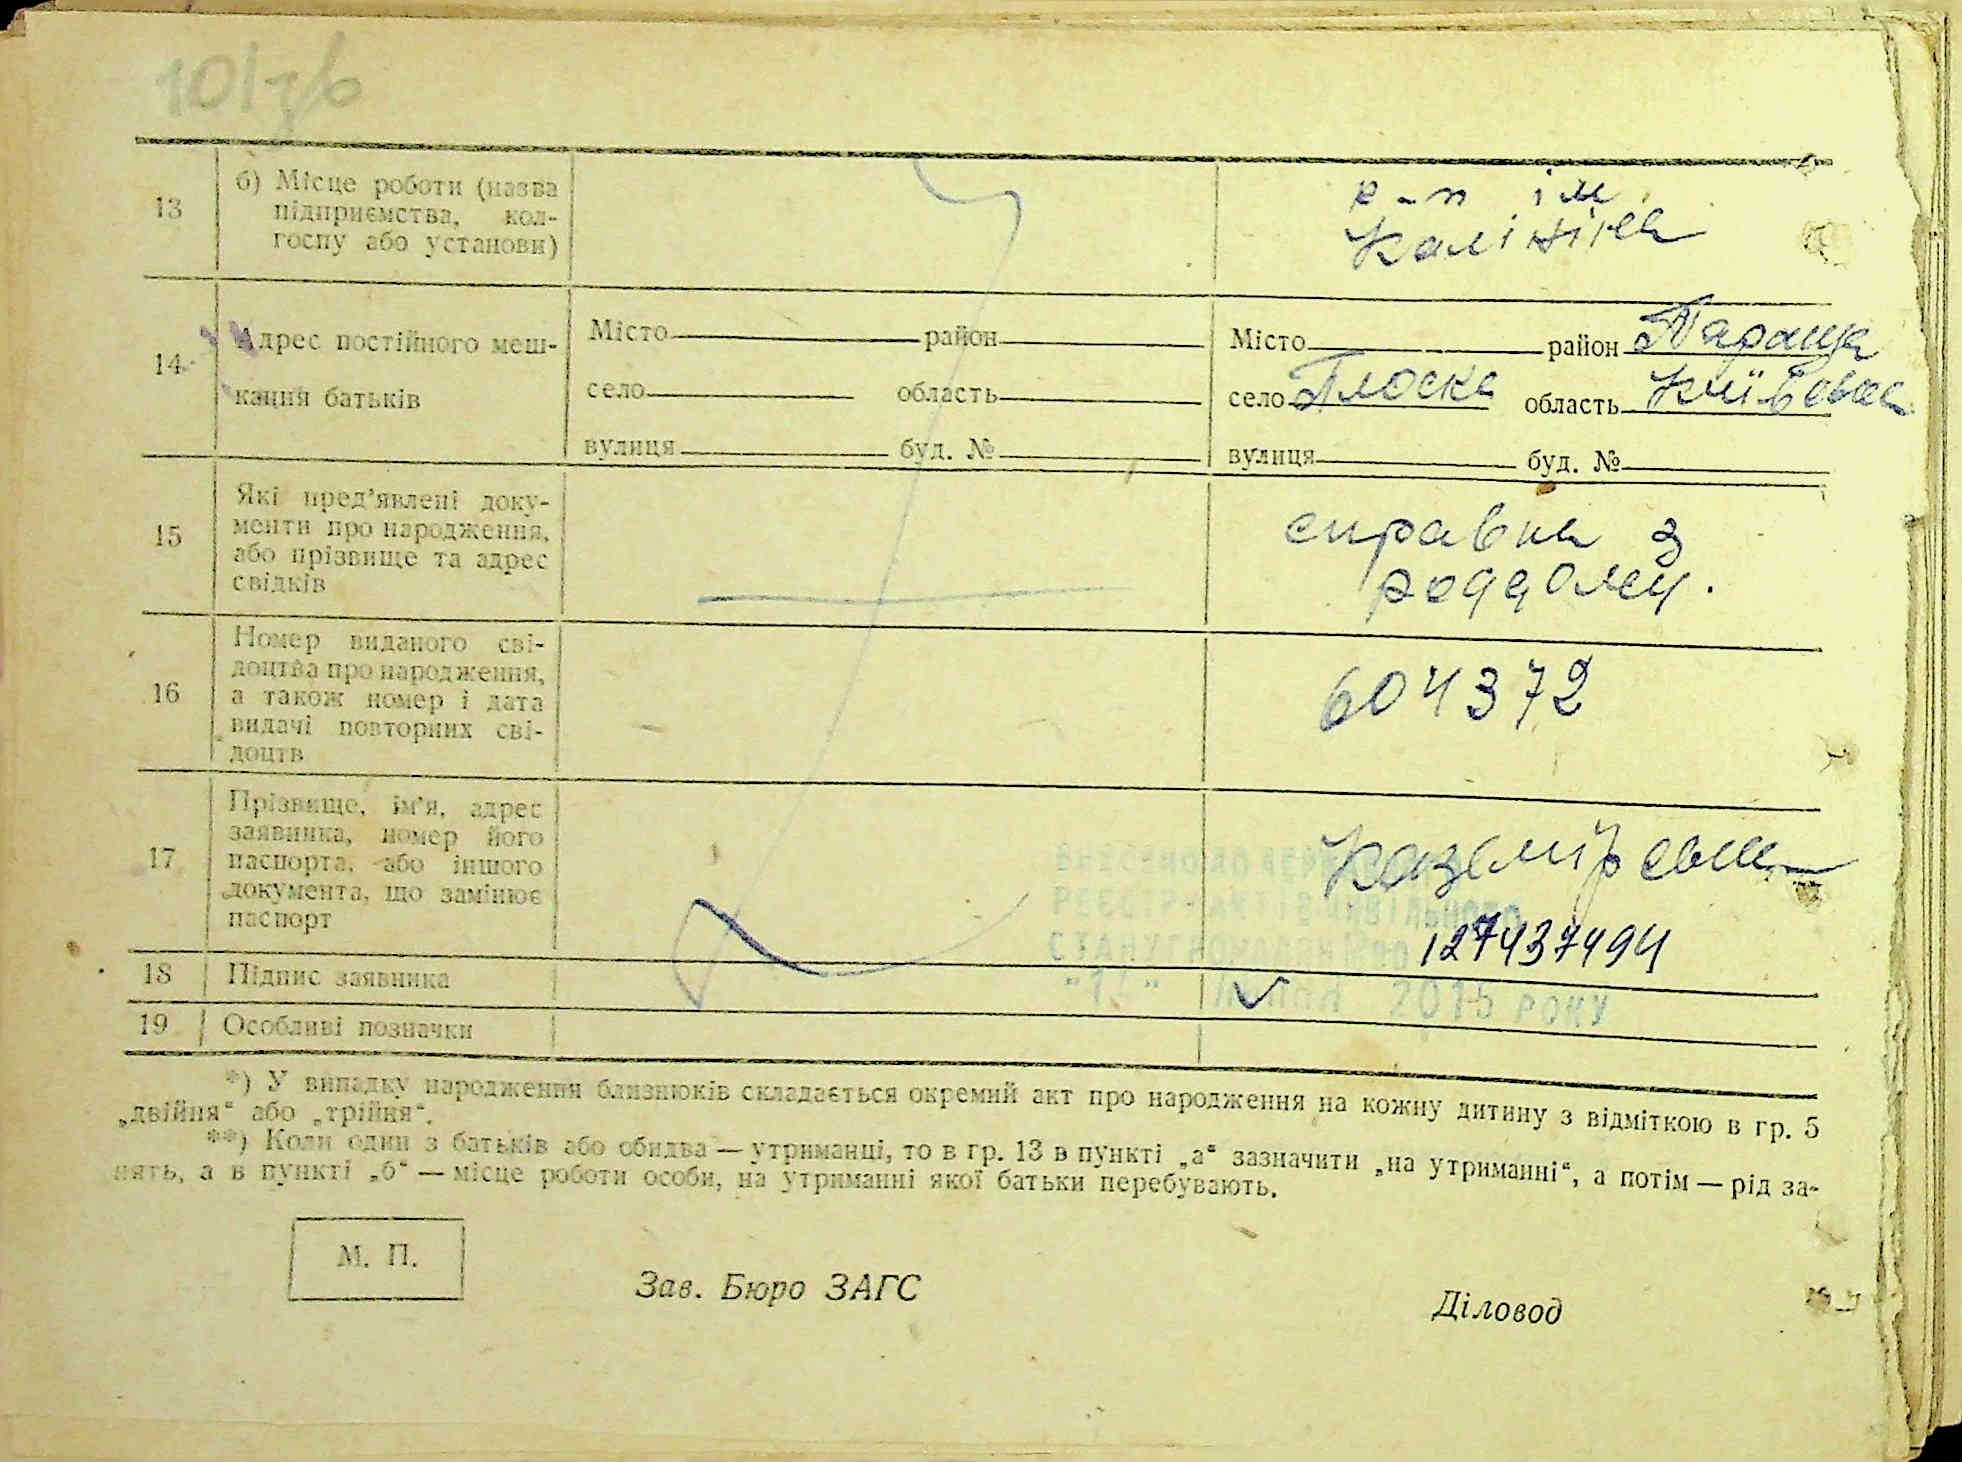 13
б) Місце роботи (назва
підприємства, кол-
госпу або установи)
к-п ім
Калініна
14
Адрес постійного меш-
кання батьків
Місто район
село область
вулиця буд. №
Місто район Тараща
село Плоске область Київська
вулиця буд. №
15
Які пред'явлені доку-
менти про народження,
або прізвище та адрес
свідків
справка з
роддому.
16
Номер виданого сві-
доцтва про народження,
а також номер і дата
видачі повторних сві-
доцтв
604372
17
Прізвище, ім'я, адрес
заявника, номер його
паспорта, або іншого
документа, що замінює
паспорт
127437494
РЕЄСТРУ АКТІВ ЦИВІЛЬНОГО
СТАНУ ГРОМАДЯН
ЛИПНЯ 2015 РОКУ
18
Підпис заявника
19
Особливі позначки
*) У випадку народження близнюків складається окремий акт про народження на кожну дитину з відміткою в гр. 5
„двійня“ або „трійня“.
**) Коли один з батьків або обидва — утриманці, то в гр. 13 в пункті „а“ зазначити „на утриманні“, а потім — рід за-
нять, а в пункті „б“ — місце роботи особи, на утриманні якої батьки перебувають.
М. П.
Зав. Бюро ЗАГС
Діловод